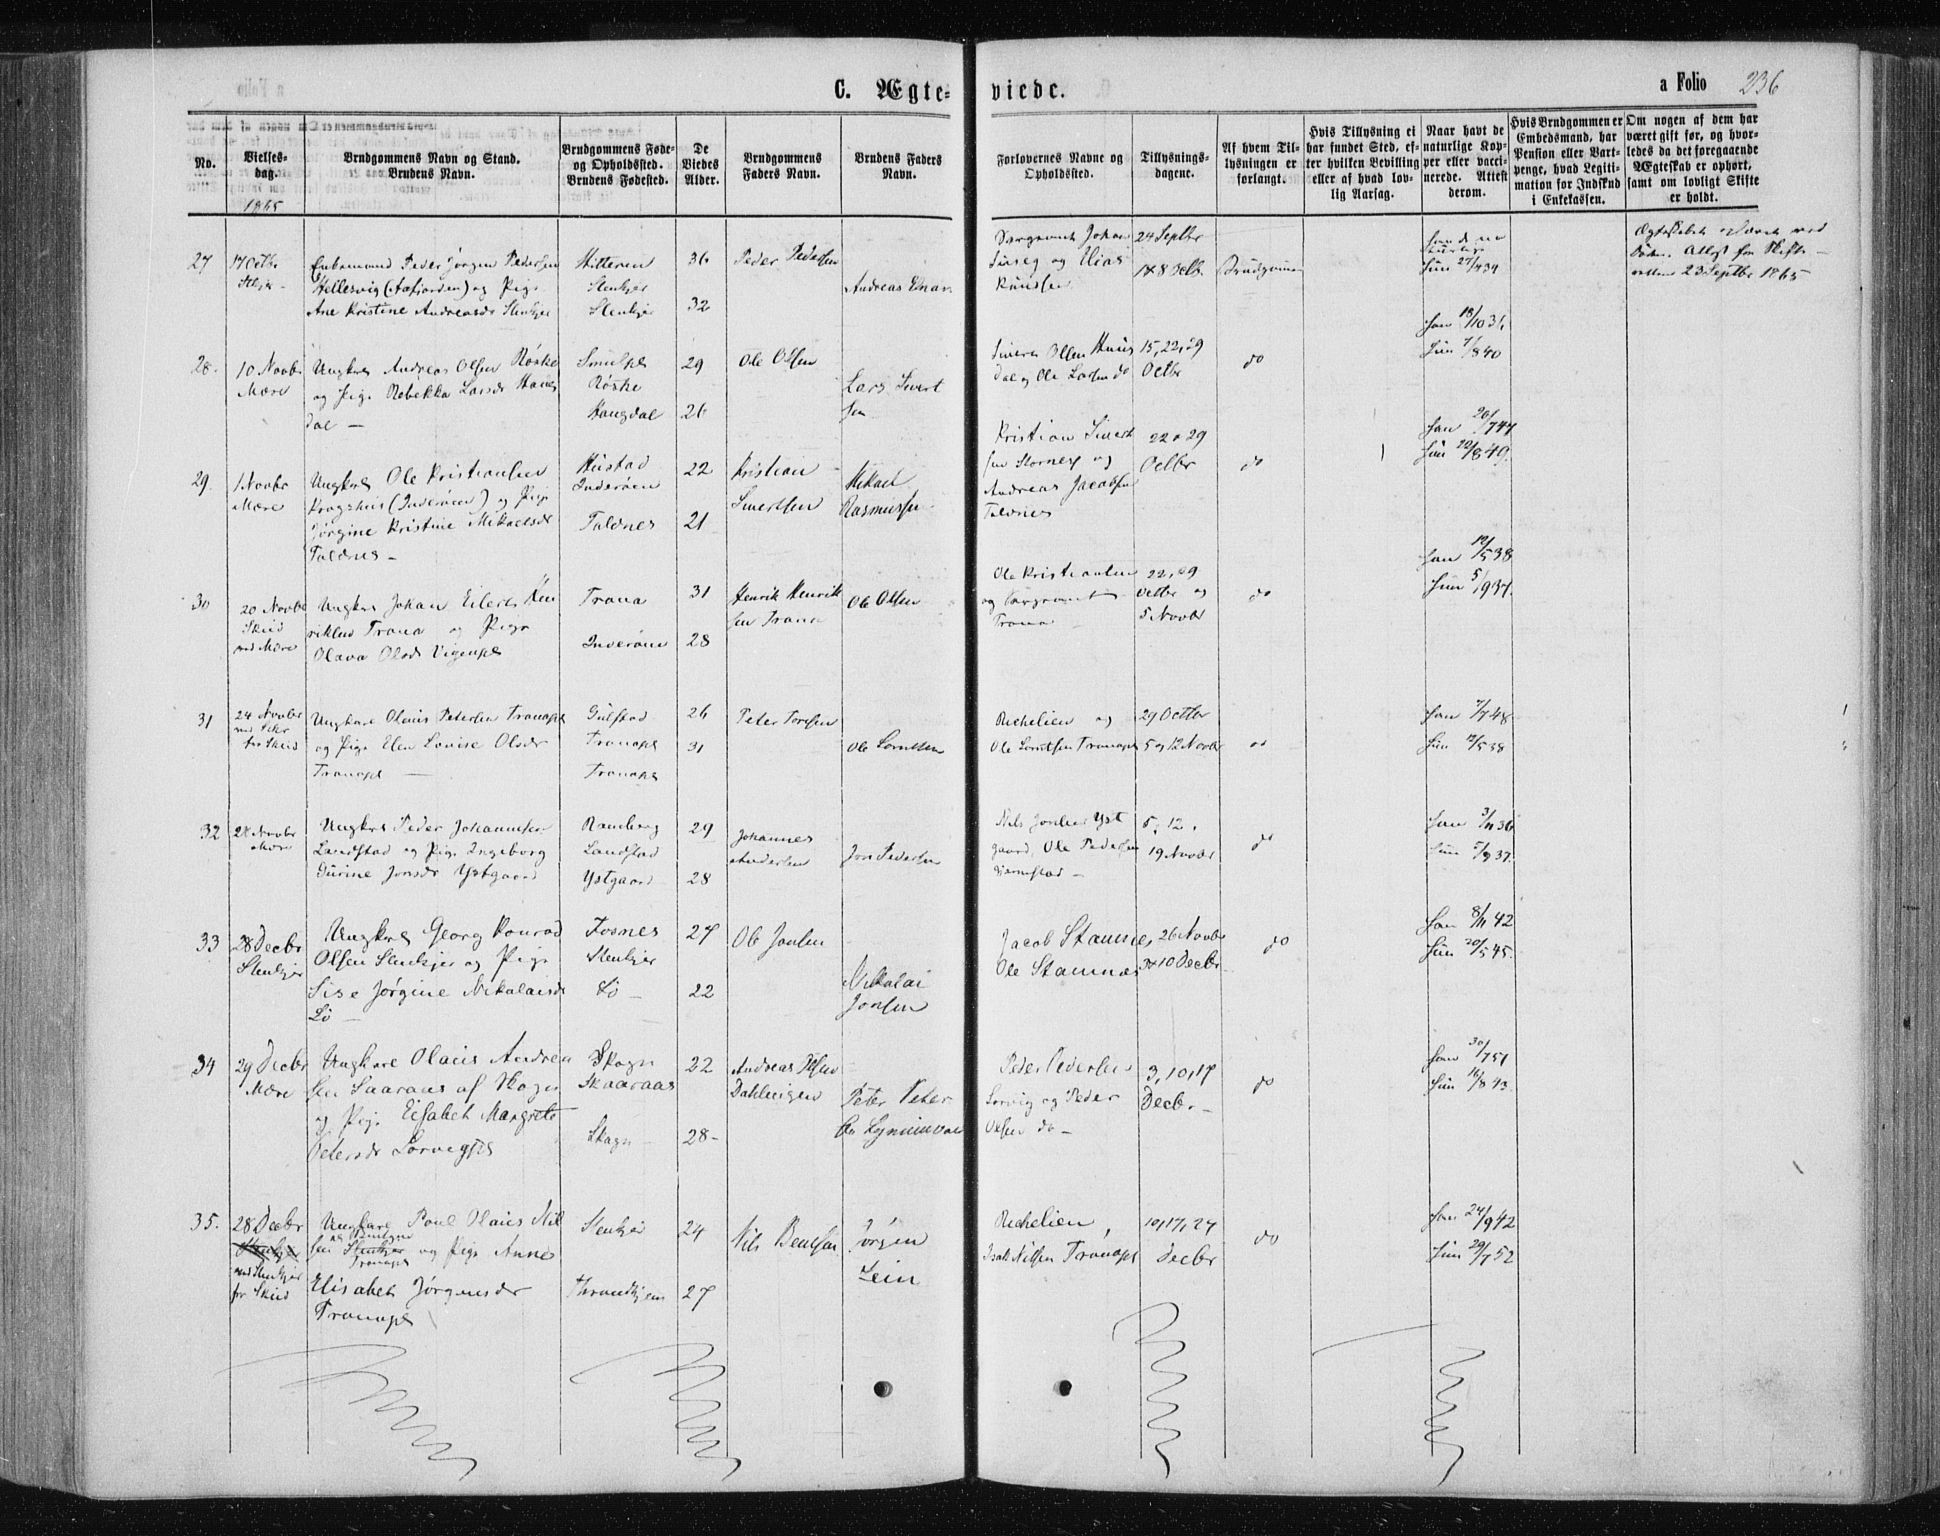 C. Ægte-
viede.
a Folio 236
No.
Vielses-
dag.
1865
Brudgommens Navn og Stand.
Brudens Navn.
Brudgommens Føde-
og Opholdssted.
Brudens Fødested.
De
Viedes
Alder.
Brudgommens
Faders Navn.
Brudens Faders
Navn.
Forlovernes Navne og
Opholdssted.
Tillysnings-
dagene.
Af hvem Til-
lysningen er
forlangt.
Hvis Tillysning ei
har fundet Sted, ef-
ter hvilken Bevilling
eller af hvad lov-
lig Aarsag.
Naar havt de
naturlige Kop-
per eller vacci-
nerede. Attest
derom.
Hvis Brudgommen er
Embedsmand, har
Pension eller Vart-
penge, hvad Legiti-
mation for Indskud
i Enkekassen.
Om nogen af dem har
været gift før, og hvor-
ledes da det foregaaende
Ægteskab er ophørt,
samt om lovligt Skifte
er holdt.
27
17 Octbr
Enkemand Peder Jørgen Pedersen
og Pige
Ane Kristine Andreasdr Stenkjer
Hitteren
Stenkjer
Stenkjer
36
32
Peder Pedersen
Andreas
Johan
og Elias
Knudsen
24 Septbr
1 & 8 Octb
Brudgommen
Hun 27/4 34
23 Septbr 1865
28.
10 Novbr
Mære
Ungkrl Andreas Olsen Røske
og Pige Rebekka Larsdr Haugs
dal —
Røske
Haugdal
29
26
Ole Olsen
Lars Sivert
sen
Sivert Olsen Haugs
dal og Ole Larsen do
15, 22, 29
Octbr
do
Han 18/10 36
Hun 7/8 40
29.
1 Novbr
Mære
Ungkrl Ole Kristiansen
Kragshus (Inderøen) og Pige
Jørgine Kristine Mikaelsdr
Taldnes —
Hustad
Inderøen
Taldnes
22
21
Kristian
Sivertsen
Mikael
Rasmussen
Kristian Sivert
sen Stornes og
Andreas Jacobsen
Taldnes
22 & 29
Octbr
do
Han 20/7 44
Hun 22/8 49.
30
20 Novbr
Skeid
Ungkrl Johan Eilert Hen
riksen Trana og Pige
Olava Olsdr
Trana
Inderøen
31
28
Henrik Henrik
sen Trana
Ole Olsen
Ole Kristiansen
og
Trana
22, 29
Octbr og
5 Novbr
do
Han 12/5 38
Hun 5/9 37.
31
24 Novbr
Ungkarl Olaus Petersen Tranapl
og Pige Elen Lovise Olsdr
Tranapl —
Gulstad
Tranapl
Tranapl
26
31
Peter Torsen
Ole Lorntsen
Richelien og
Ole Lorntsen Tranapl
29 Octbr
5 og 12 Novbr
do
Han 7/7 48
Hun 12/5 38
32
Novbr
Mære
Ungkrl Peder Johannesen
Landstad og Pige Ingeborg
Gurine Jonsdr Ystgaard
Ramberg
Landstad
Ystgaard
29
28
Johannes
Andersen
Jon Pedersen
Nils Jonsen Yst
gaard, Ole Pedersen
5, 12,
19 Novbr
do
Han 3/11 36
Hun 5/9 37.
33
28 Decbr
Stenkjer
Ungkrl Georg Konrad
Olsen Stenkjer og Pige
Lise Jørgine Nikolaisdr
Lø —
Fosnes
Stenkjer
Lø —
27
22
Ole Jonsen
Nikolai
Jonsen
Jacob Stamnes
Ole Stamnes
26 Novbr
3 & 10 Decbr
do
Han 8/11 42
Hun 20/5 45.
34
29 Decbr
Mære
Ungkarl Olaus Andrea
sen Saaraas af Skogn
og Pige Elisabet Margrete
Petersdr
Skogn
Skaaraas
Skogn
22
28 —
Andreas Olsen
Peter Peter
sen
Peder Pedersen
og Peder
Olsen do —
3, 10, 17
Decbr —
do
Han 30/7 51
Hun 16/8 43.
35.
28 Decbr
Stenkjer
ved Stenkjer
for Skeid
Ungkarl Poul Olaus Nil
sen Stenkjer og Pige Anne
Tranapl
Elisabet Jørgensdr
Tranapl
Stenkjer
Throndhjem
24
27
Nils Bentsen
Jørgen
Lein
Richelien,
Isak Nilsen Tranapl
10, 17, 24
Decbr
do
Han 24/9 42
Hun 29/7 52